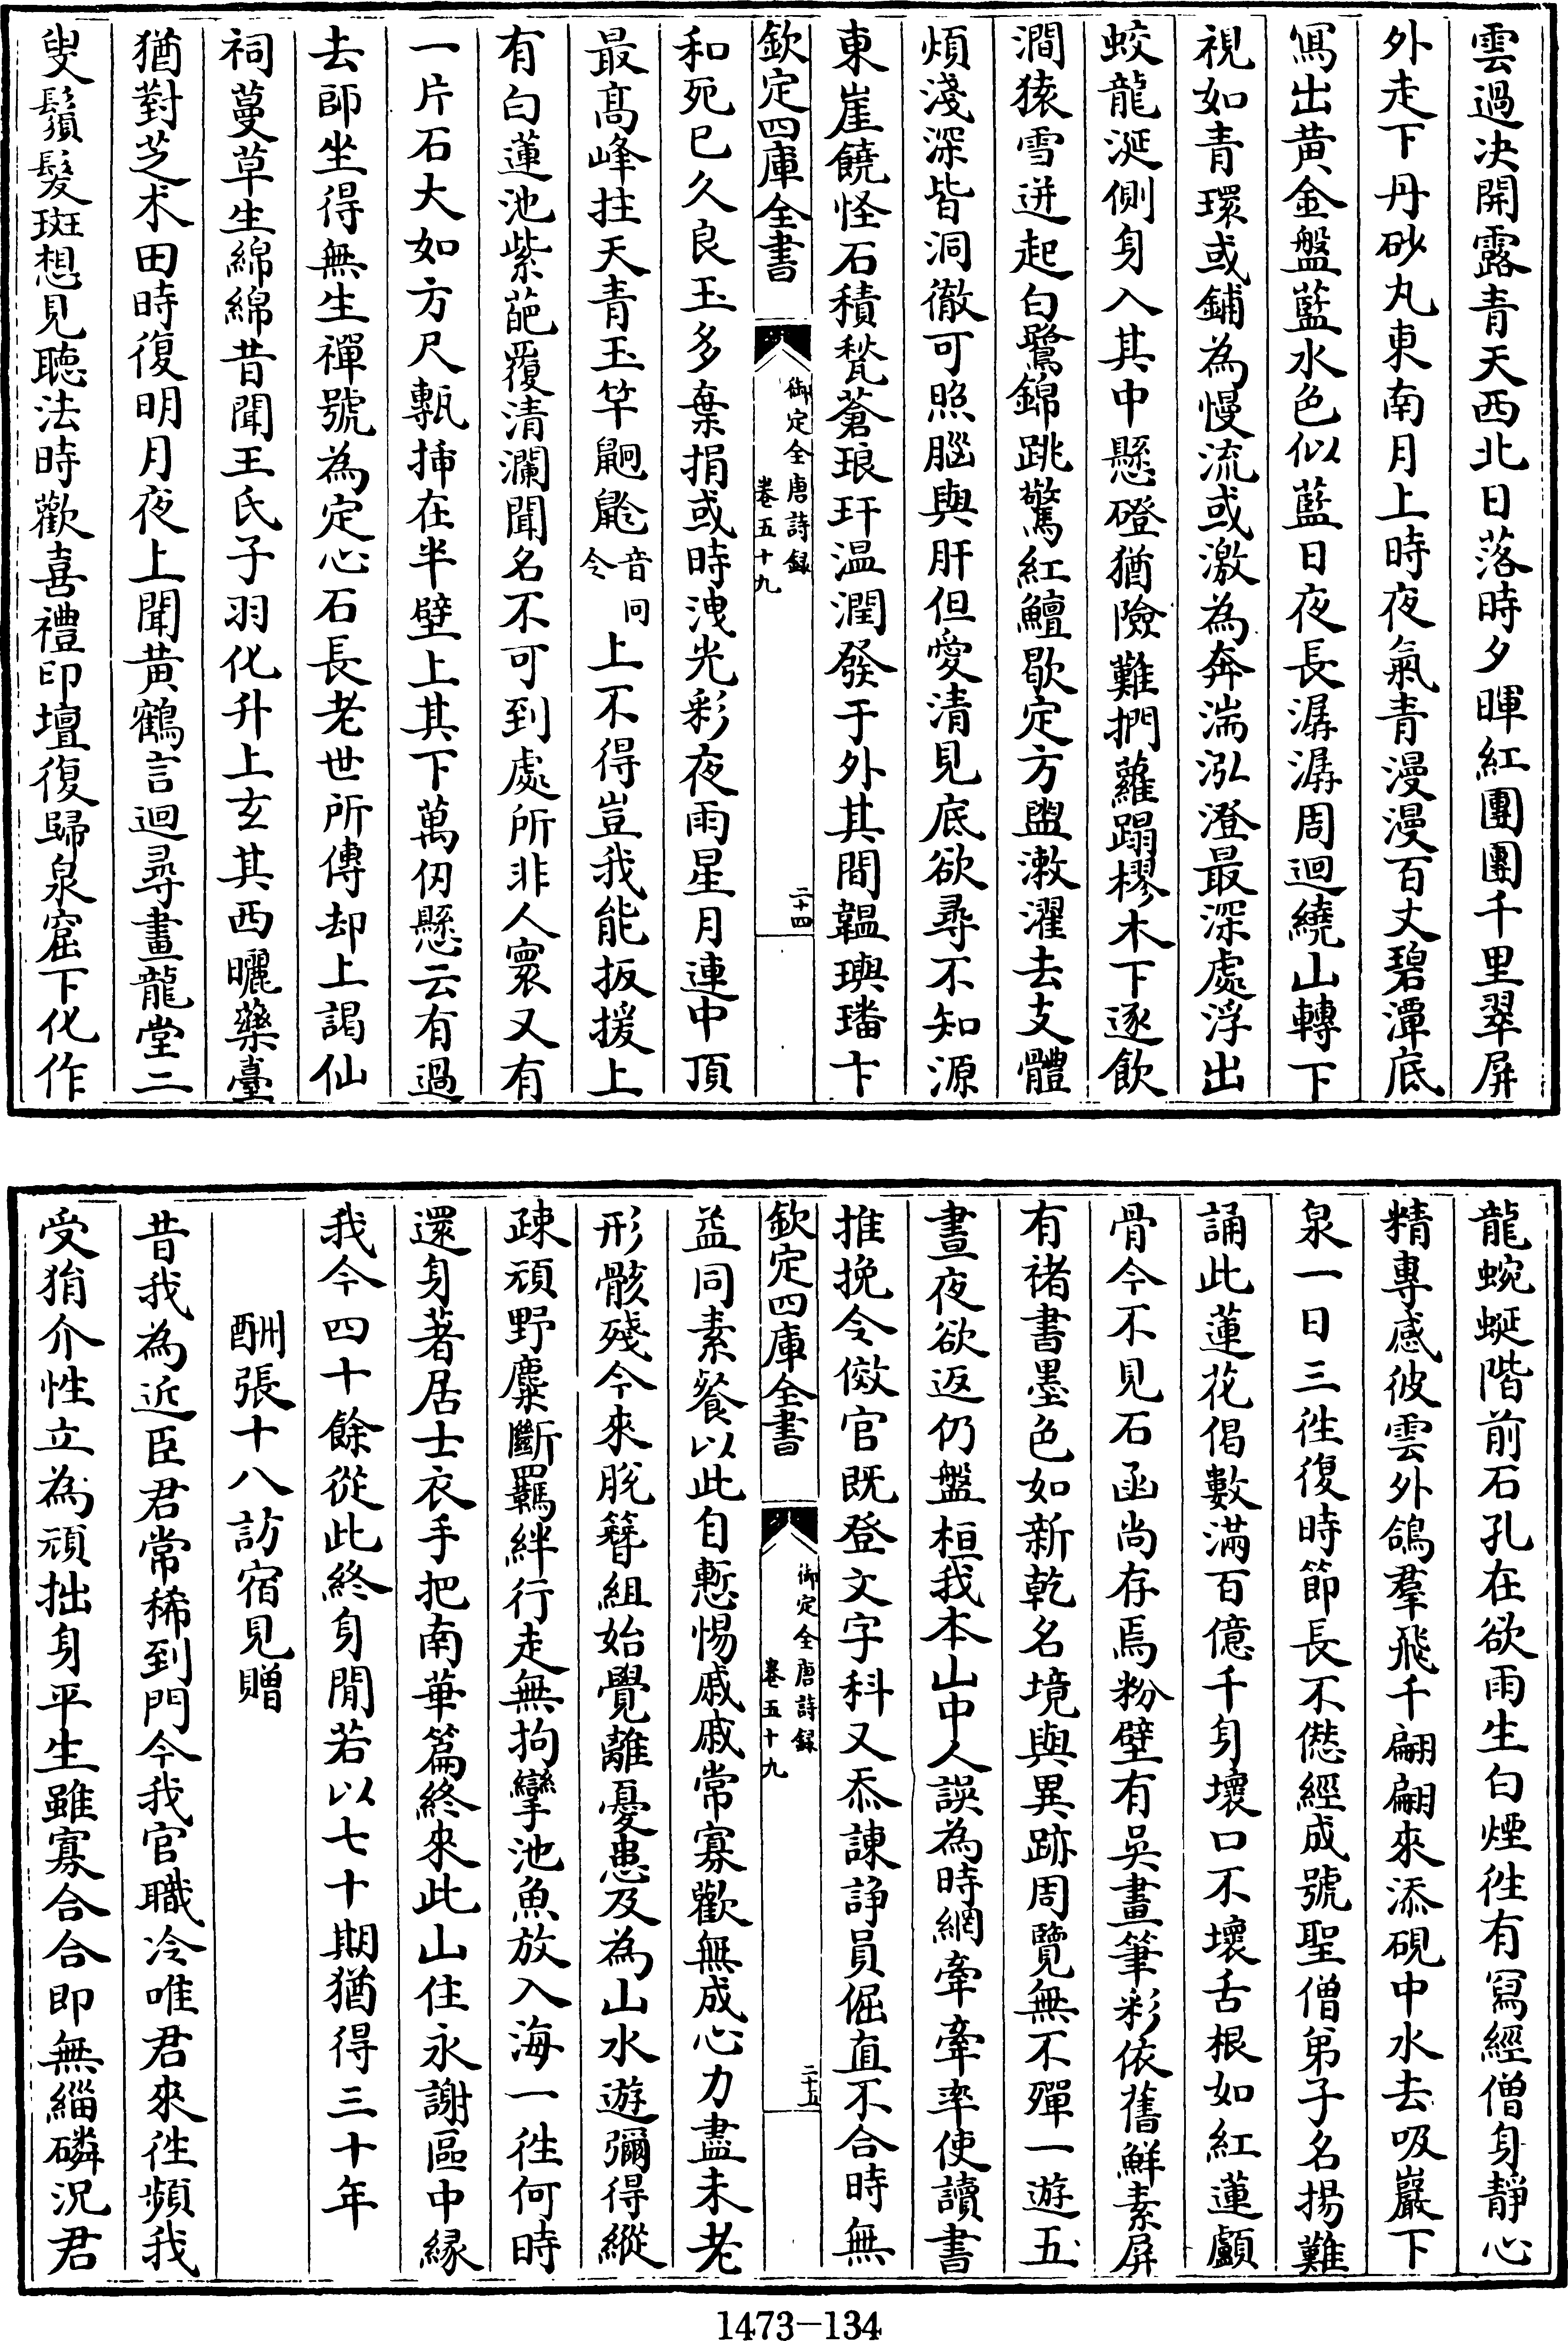 雲過决開露青天西北日落時夕暉紅團團千里翠屏
外走下丹砂丸東南月上時夜氣青漫漫百丈碧潭底
寫出黄金盤藍水色似藍日夜長潺潺周迴繞山轉下
視如青環或鋪為慢流或激為奔湍泓澄最深處浮出
蛟龍涎側身入其中懸磴猶險難捫蘿蹋樛木下逐飲
澗猿雪迸起白鷺錦跳驚紅鱣歇定方盥漱濯去支體
煩淺深皆洞徹可照腦與肝但愛清見底欲尋不知源
東崖饒怪石積甃蒼琅玕温潤發于外其間韞璵璠卞
欽定四庫全書
御定全唐詩録
卷五十九
二十四
和死已久良玉多棄捐或時洩光彩夜雨星月連中頂
最髙峰拄天青玉竿䶐䶎音同
今
上不得豈我能扳援上
有白蓮池紫葩覆清瀾聞名不可到處所非人寰又有
一片石大如方尺甎揷在半壁上其下萬仭懸云有過
去師坐得無生禪號為定心石長老世所傳却上謁仙
祠蔓草生綿綿昔聞王氏子羽化升上玄其西曬藥臺
猶對芝术田時復明月夜上聞黄鶴言迴尋畫龍堂二
叟鬚髮斑想見聽法時歡喜禮印壇復歸泉窟下化作
龍蜿蜒階前石孔在欲雨生白煙徃有寫經僧身靜心
精專感彼雲外鴿羣飛千翩翩來添硯中水去吸巖下
泉一日三徃復時節長不愆經成號聖僧弟子名揚難
誦此蓮花偈數滿百億千身壞口不壞舌根如紅蓮顱
骨今不見石函尚存焉粉壁有吳畫筆彩依舊鮮素屏
有褚書墨色如新乾名境與異跡周覽無不殫一遊五
晝夜欲返仍盤桓我本山中人誤為時網牽牽率使讀書
推挽令傚官既登文字科又忝諫諍員倔直不合時無
欽定四庫全書
御定全唐詩録
卷五十九
二十五
益同素餐以此自慙惕戚戚常寡歡無成心力盡未老
形骸殘今來脫簪組始覺離憂患及為山水遊彌得縱
疎頑野麋斷羈絆行走無拘攣池魚放入海一徃何時
還身著居士衣手把南華篇終來此山住永謝區中縁
我今四十餘從此終身閒若以七十期猶得三十年
酬張十八訪宿見贈
昔我為近臣君常稀到門今我官職冷唯君來徃頻我
受狷介性立為頑拙身平生雖寡合合即無緇磷況君
1473-134